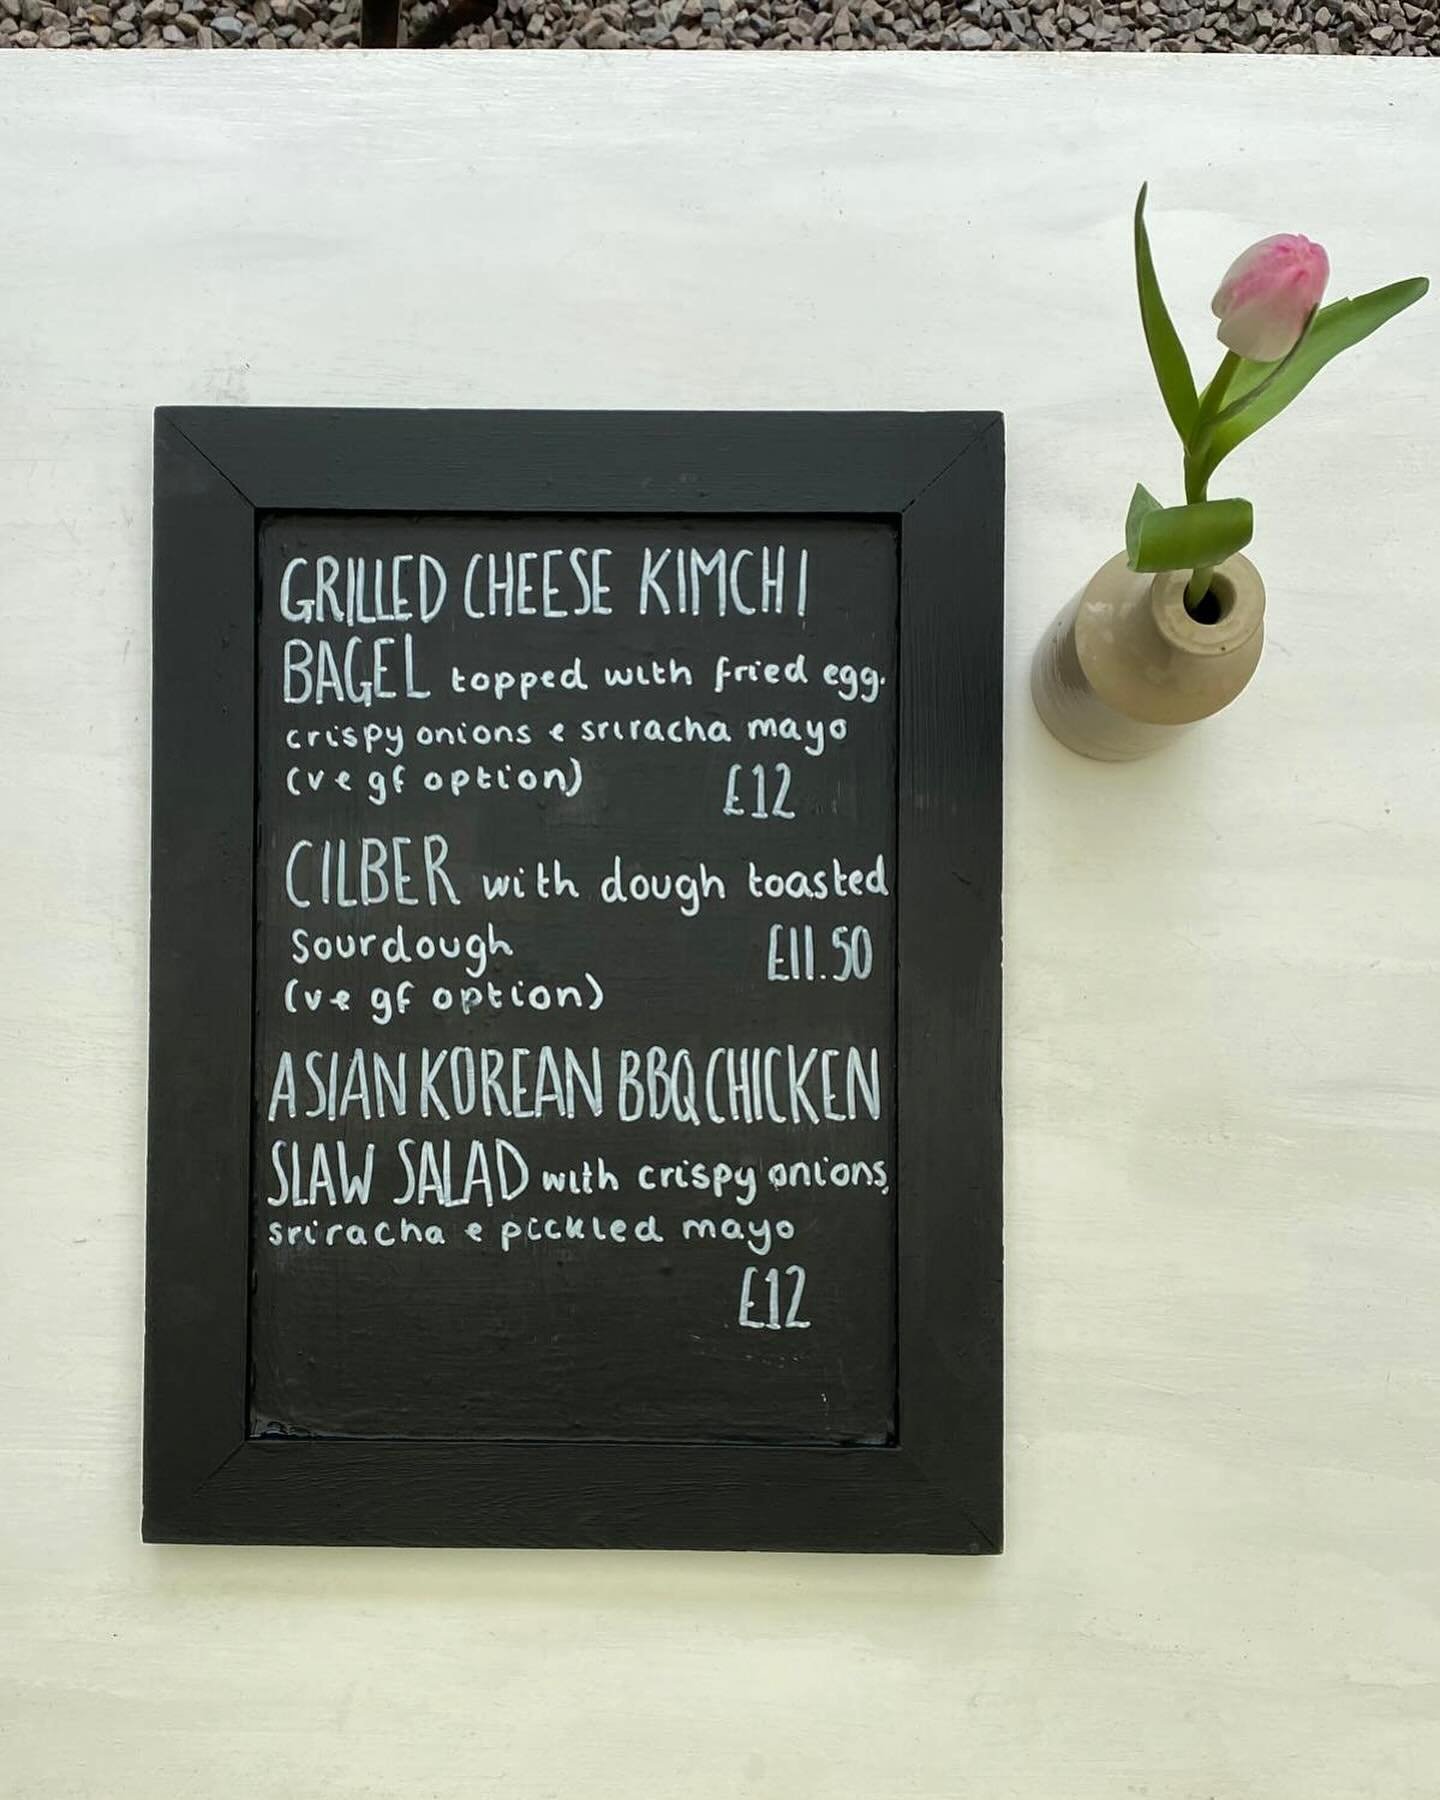 GRILLED CHEESE KIMCHI
BAGEL topped with fried egg.
crispy onions & sriracha mayo
(v & gf option) £12
CILBER with dough toasted
sourdough £11.50
(v & gf option)
ASIAN KOREAN BBQ CHICKEN
SLAW SALAD with crispy onions,
sriracha & pickled mayo
£12